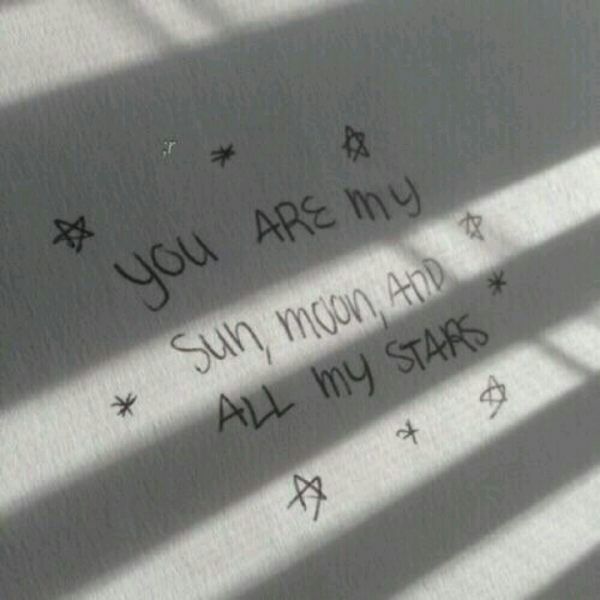 YOU ARE MY
SUN, MOON, AND
ALL MY STARS